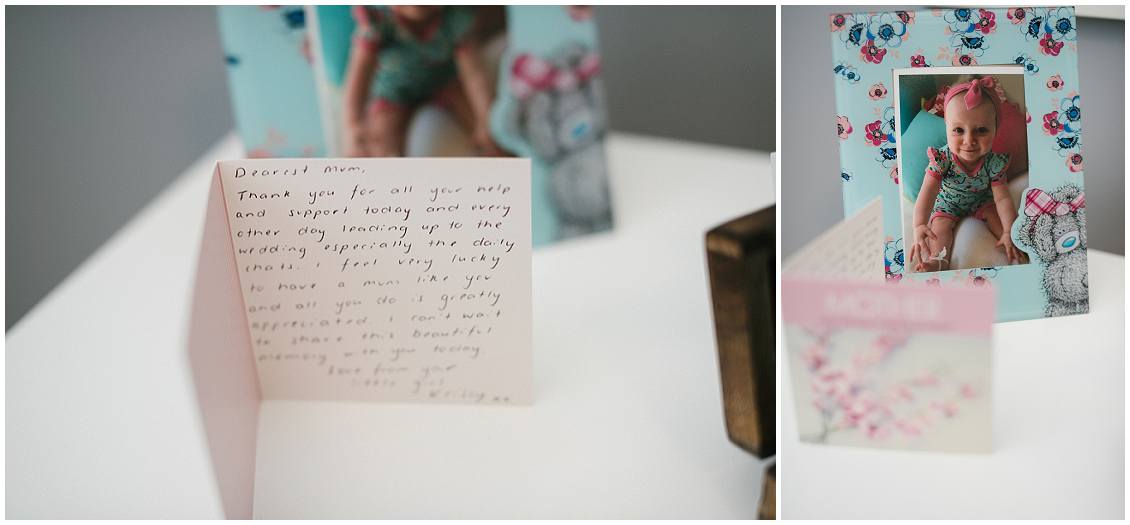 Dearest Mum,
Thank you for all your help
and support today and every
other day leading up to the
wedding especially the daily
chats. I feel very lucky
to have a mum like you
and all you do is greatly
appreciated. I can't wait
to share this beautiful
memory with you today.
Love from your
little girl
MOTHER